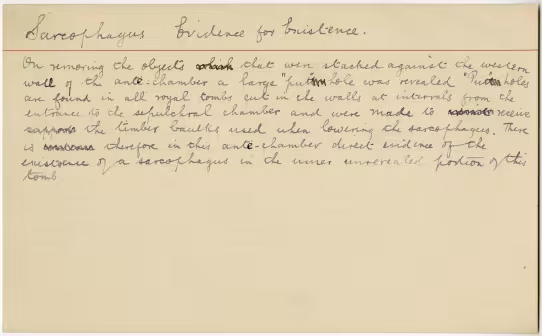 Sarcophagus Evidence for Existence.
On removing the objects which that were stacked against the western
wall of the ante-chamber a large "put hole was revealed "Put holes
are found in all royal tombs cut in the walls at intervals from the
entrance to the sepulchral chamber and were made to receive
support the timber baulks used when lowering the sarcophagus. There
is therefore in this ante-chamber direct evidence of the
existence of a sarcophagus in the inner unrevealed portion of this
tomb